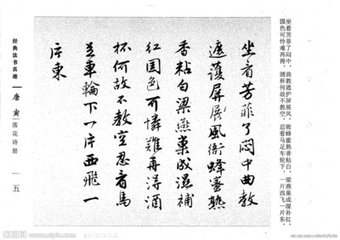 坐看芳菲了闷中，曲教遮护屏展风。衙蜂蜜熟香粘白，梁燕巢成湿补红。
国色可怜难再得，酒杯何故不教空。忍看马足车轮下，一片西飞一片东。
坐看芳菲了悶中曲教
遮護屏展風衙蜂蜜熟
香粘白梁燕巢成濕補
紅國色可憐難再得酒
杯何故不教空忍看馬
足車輪下一片西飛一
片東
唐寅
落花诗册
五